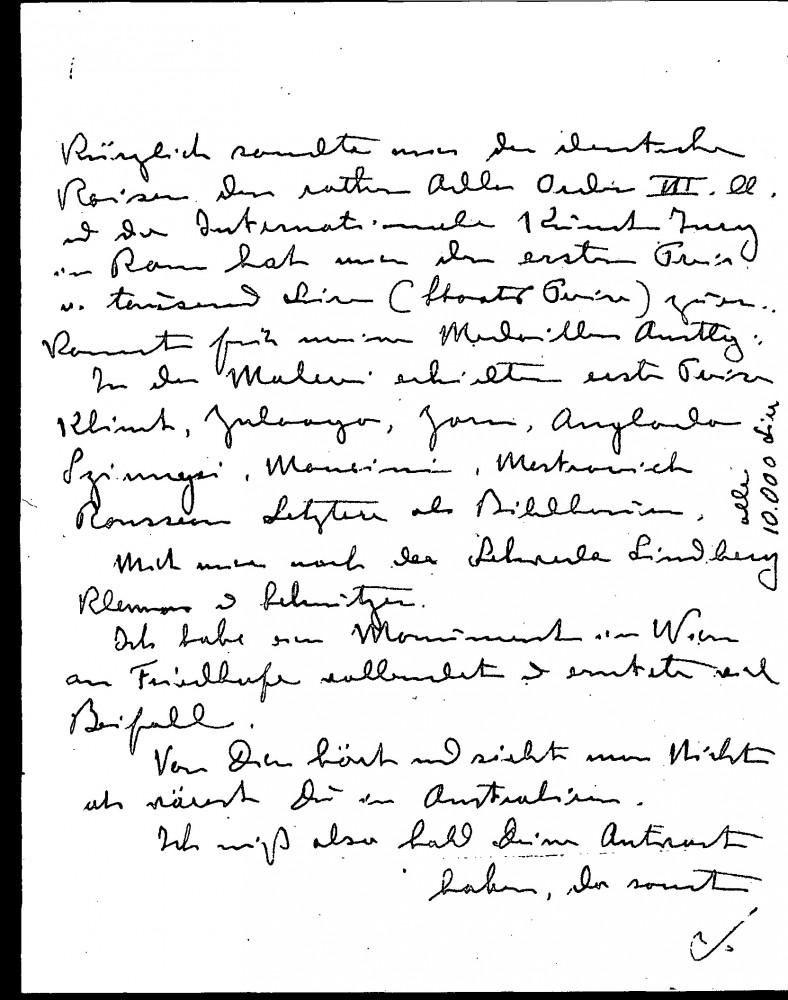 Kürzlich sandte mir der deutsche
Kaiser den rothen Adler Orden III. Cl.
und die Internationale Kunst Jury
in Rom hat mir den ersten Preis
v. tausend Lire (Staats Preise) zuer-
kannt für meine Medaillen Austlg.
In der Malerei erhielten erste Preise
Klimt, Zuloaga, Zorn, Anglada
Szinnyei, Mancini, Mestrovich
Rousseau Letztere als Bildhauer,
alle
10.000 Lire
Mit mir noch der Schwede Lindberg
und Schnitzer.
Ich habe ein Monument in Wien
am Friedhofe vollendet und erntete viel
Beifall.
Von Dir hört und sieht man Nichts
als wärest Du in Australien.
Ich muß also bald Deine Antwort
haben, da sonst